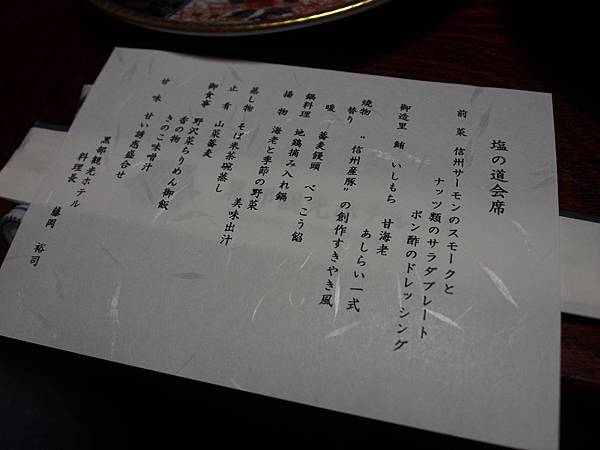 塩の道会席
前菜 信州サーモンのスモークと
ナッツ類のサラダプレート
ポン酢のドレッシング
御造里 鮪 いしもち 甘海老
あしらい一式
焼物 “信州産豚”の創作すきやき風
替り
暖 蕎麦饅頭 べっこう餡
鍋料理 地鶏摘み入れ鍋
揚物 海老と季節の野菜
美味出汁
蒸し物 そば米茶碗蒸し
止肴 山菜蕎麦
御食事 野沢菜ちりめん御飯
香の物
きのこ味噌汁
甘味 甘い誘惑盛合せ
黒部観光ホテル
料理長 藤岡 裕司